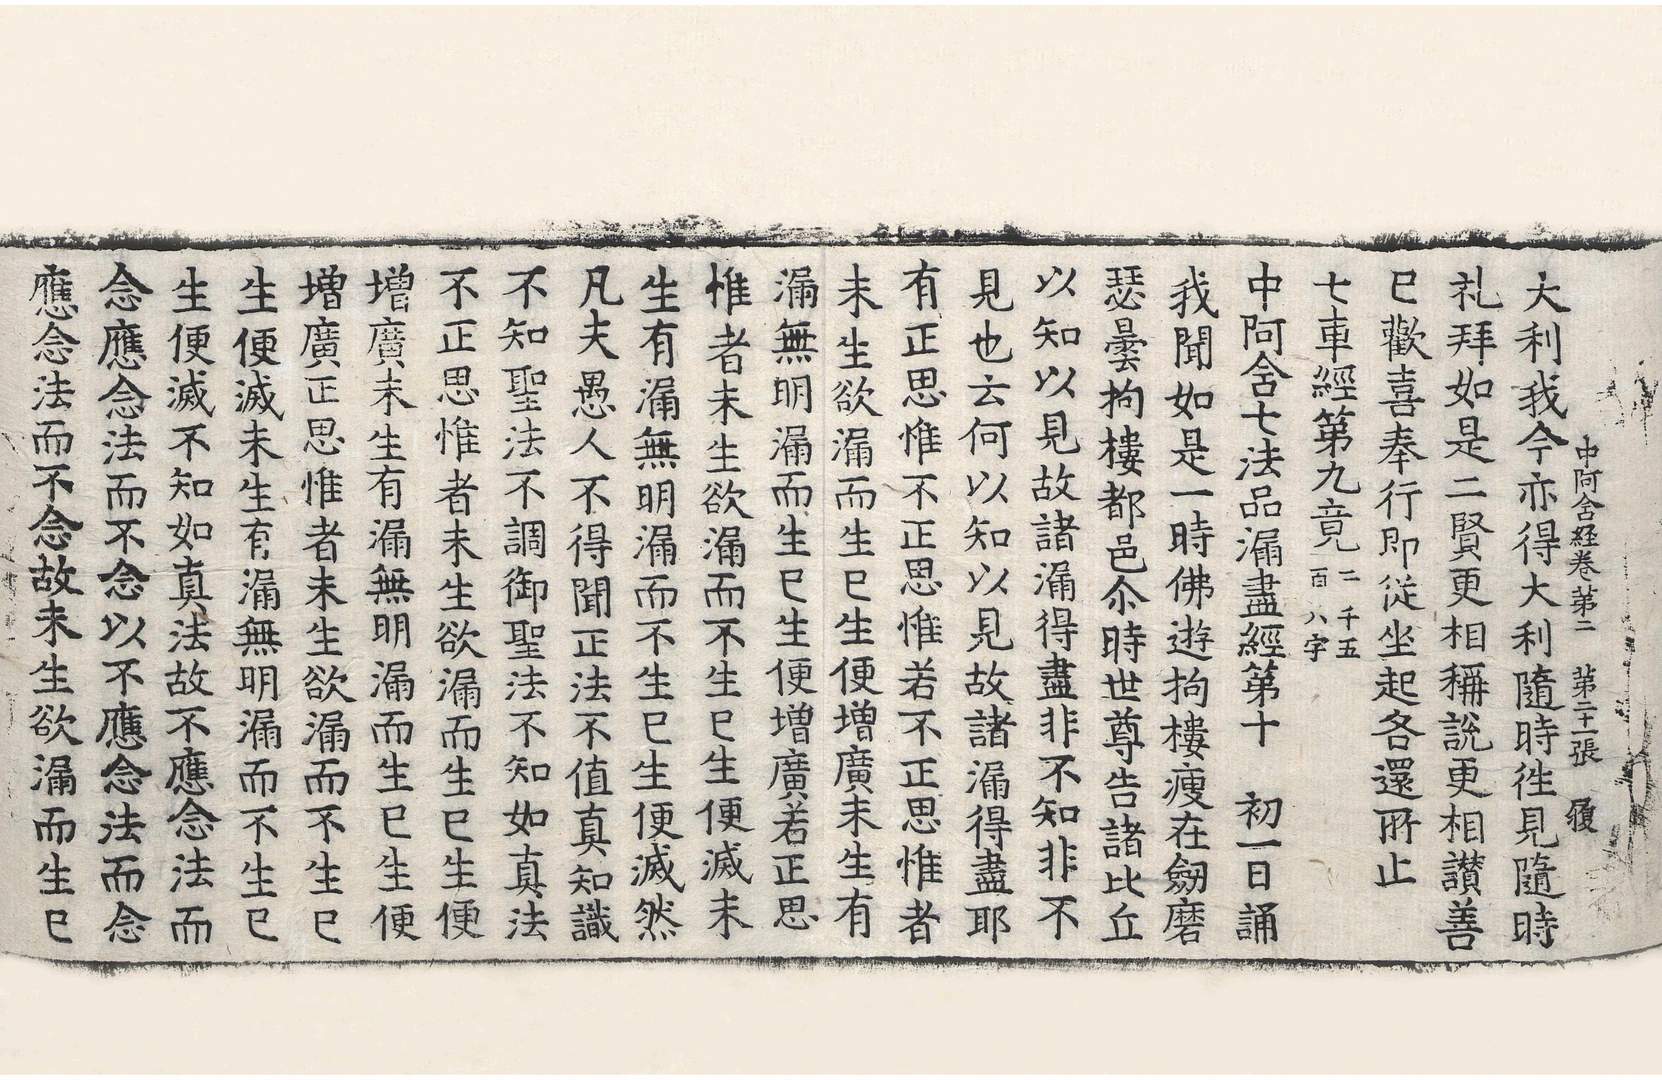 中阿含経卷第二　第二十一張　履
大利我今亦得大利隨時徃見隨時
礼拜如是二賢更相稱說更相讃善
已歡喜奉行即從坐起各還所止
七車經第九竟二千五百八字
中阿含七法品漏盡經第十　初一日誦
我聞如是一時佛遊拘樓瘦在劒磨
瑟曇拘樓都邑尒時世尊告諸比丘
以知以見故諸漏得盡非不知非不
見也云何以知以見故諸漏得盡耶
有正思惟不正思惟若不正思惟者
未生欲漏而生已生便增廣未生有
漏無明漏而生已生便增廣若正思
惟者未生欲漏而不生已生便滅未
生有漏無明漏而不生已生便滅然
凡夫愚人不得聞正法不值真知識
不知聖法不調御聖法不知如真法
不正思惟者未生欲漏而生已生便
增廣未生有漏無明漏而生已生便
增廣正思惟者未生欲漏而不生已
生便滅未生有漏無明漏而不生已
生便滅不知如真法故不應念法而
念應念法而不念以不應念法而念
應念法而不念故未生欲漏而生已